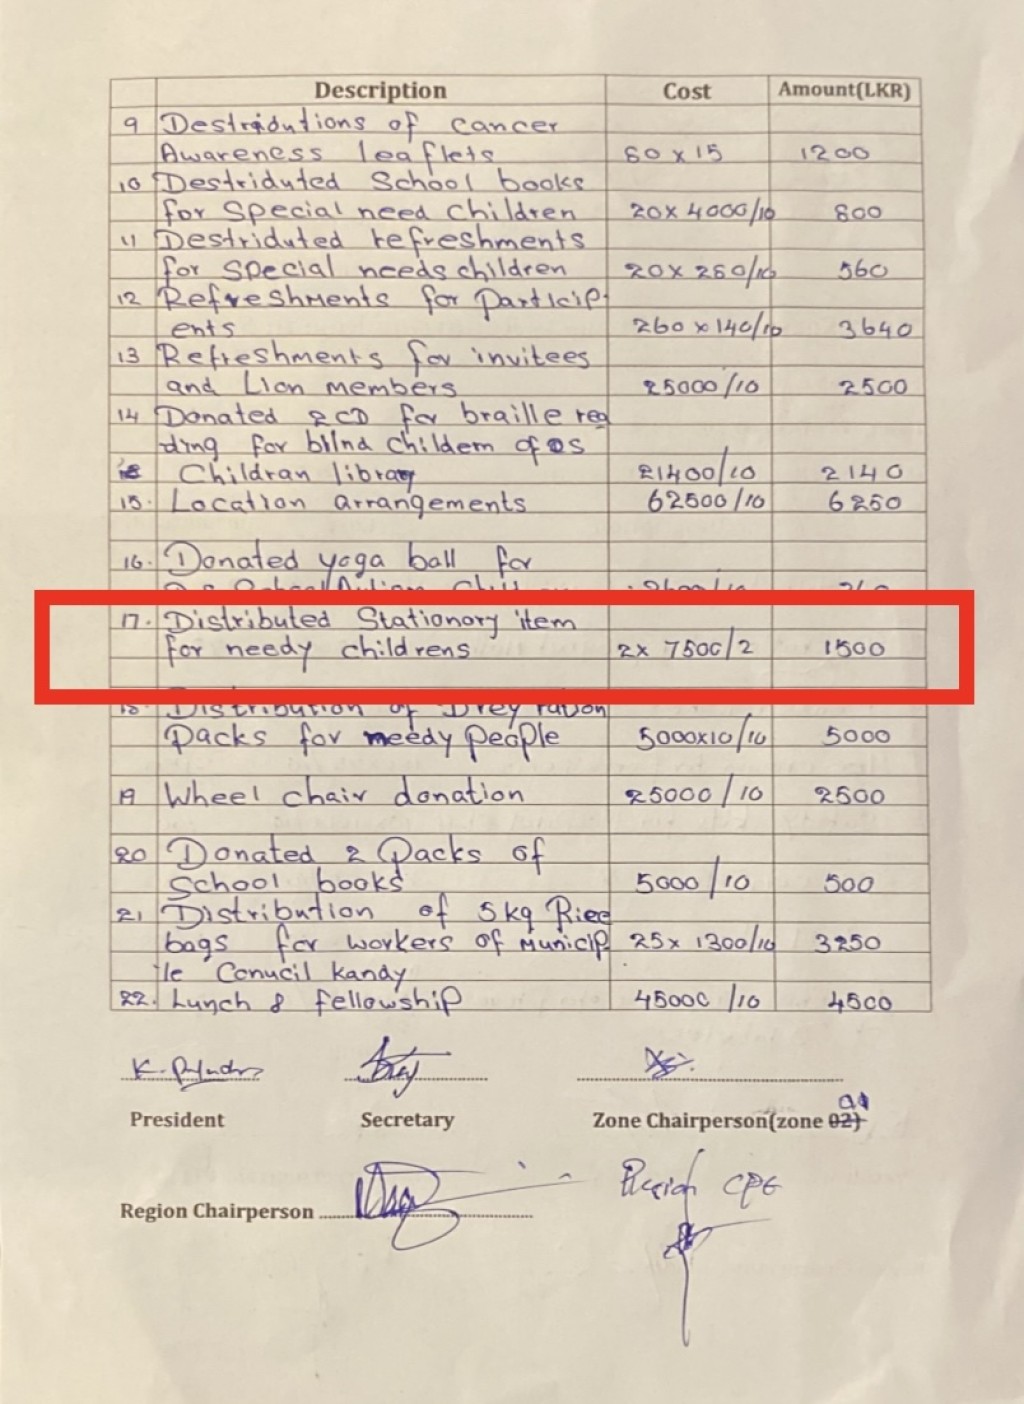 Description Cost Amount(LKR)
9 Destridutions of cancer
Awareness leaflets 80 x 15 1200
10 Destriduted School books
for Special need children 20x 4000/10 800
11 Destriduted refreshments
for special needs children 20x 280/10 560
12 Refreshments for particip-
ents 260 x 140/10 3640
13 Refreshments for invitees
and Lion members 25000/10 2500
14 Donated 2CD for braille rea
ding for blind childern of DS
Childran library 21400/10 2140
15. Location arrangements 62500/10 6250
16. Donated yoga ball for
17. Distributed Stationory item
for needy childrens 2x 7500/2 1500
18. Distribution of Drey ration
Packs for needy people 5000x10/10 5000
19 Wheel chair donation 25000/10 2500
20 Donated 2 Packs of
School books 5000/10 500
21, Distribution of 5kg Rice
bags for workers of Municip 25x 1300/10 3250
ile Conucil kandy
22. Lunch & fellowship 45000/10 4500
President Secretary Zone Chairperson(zone 02)
Region Chairperson